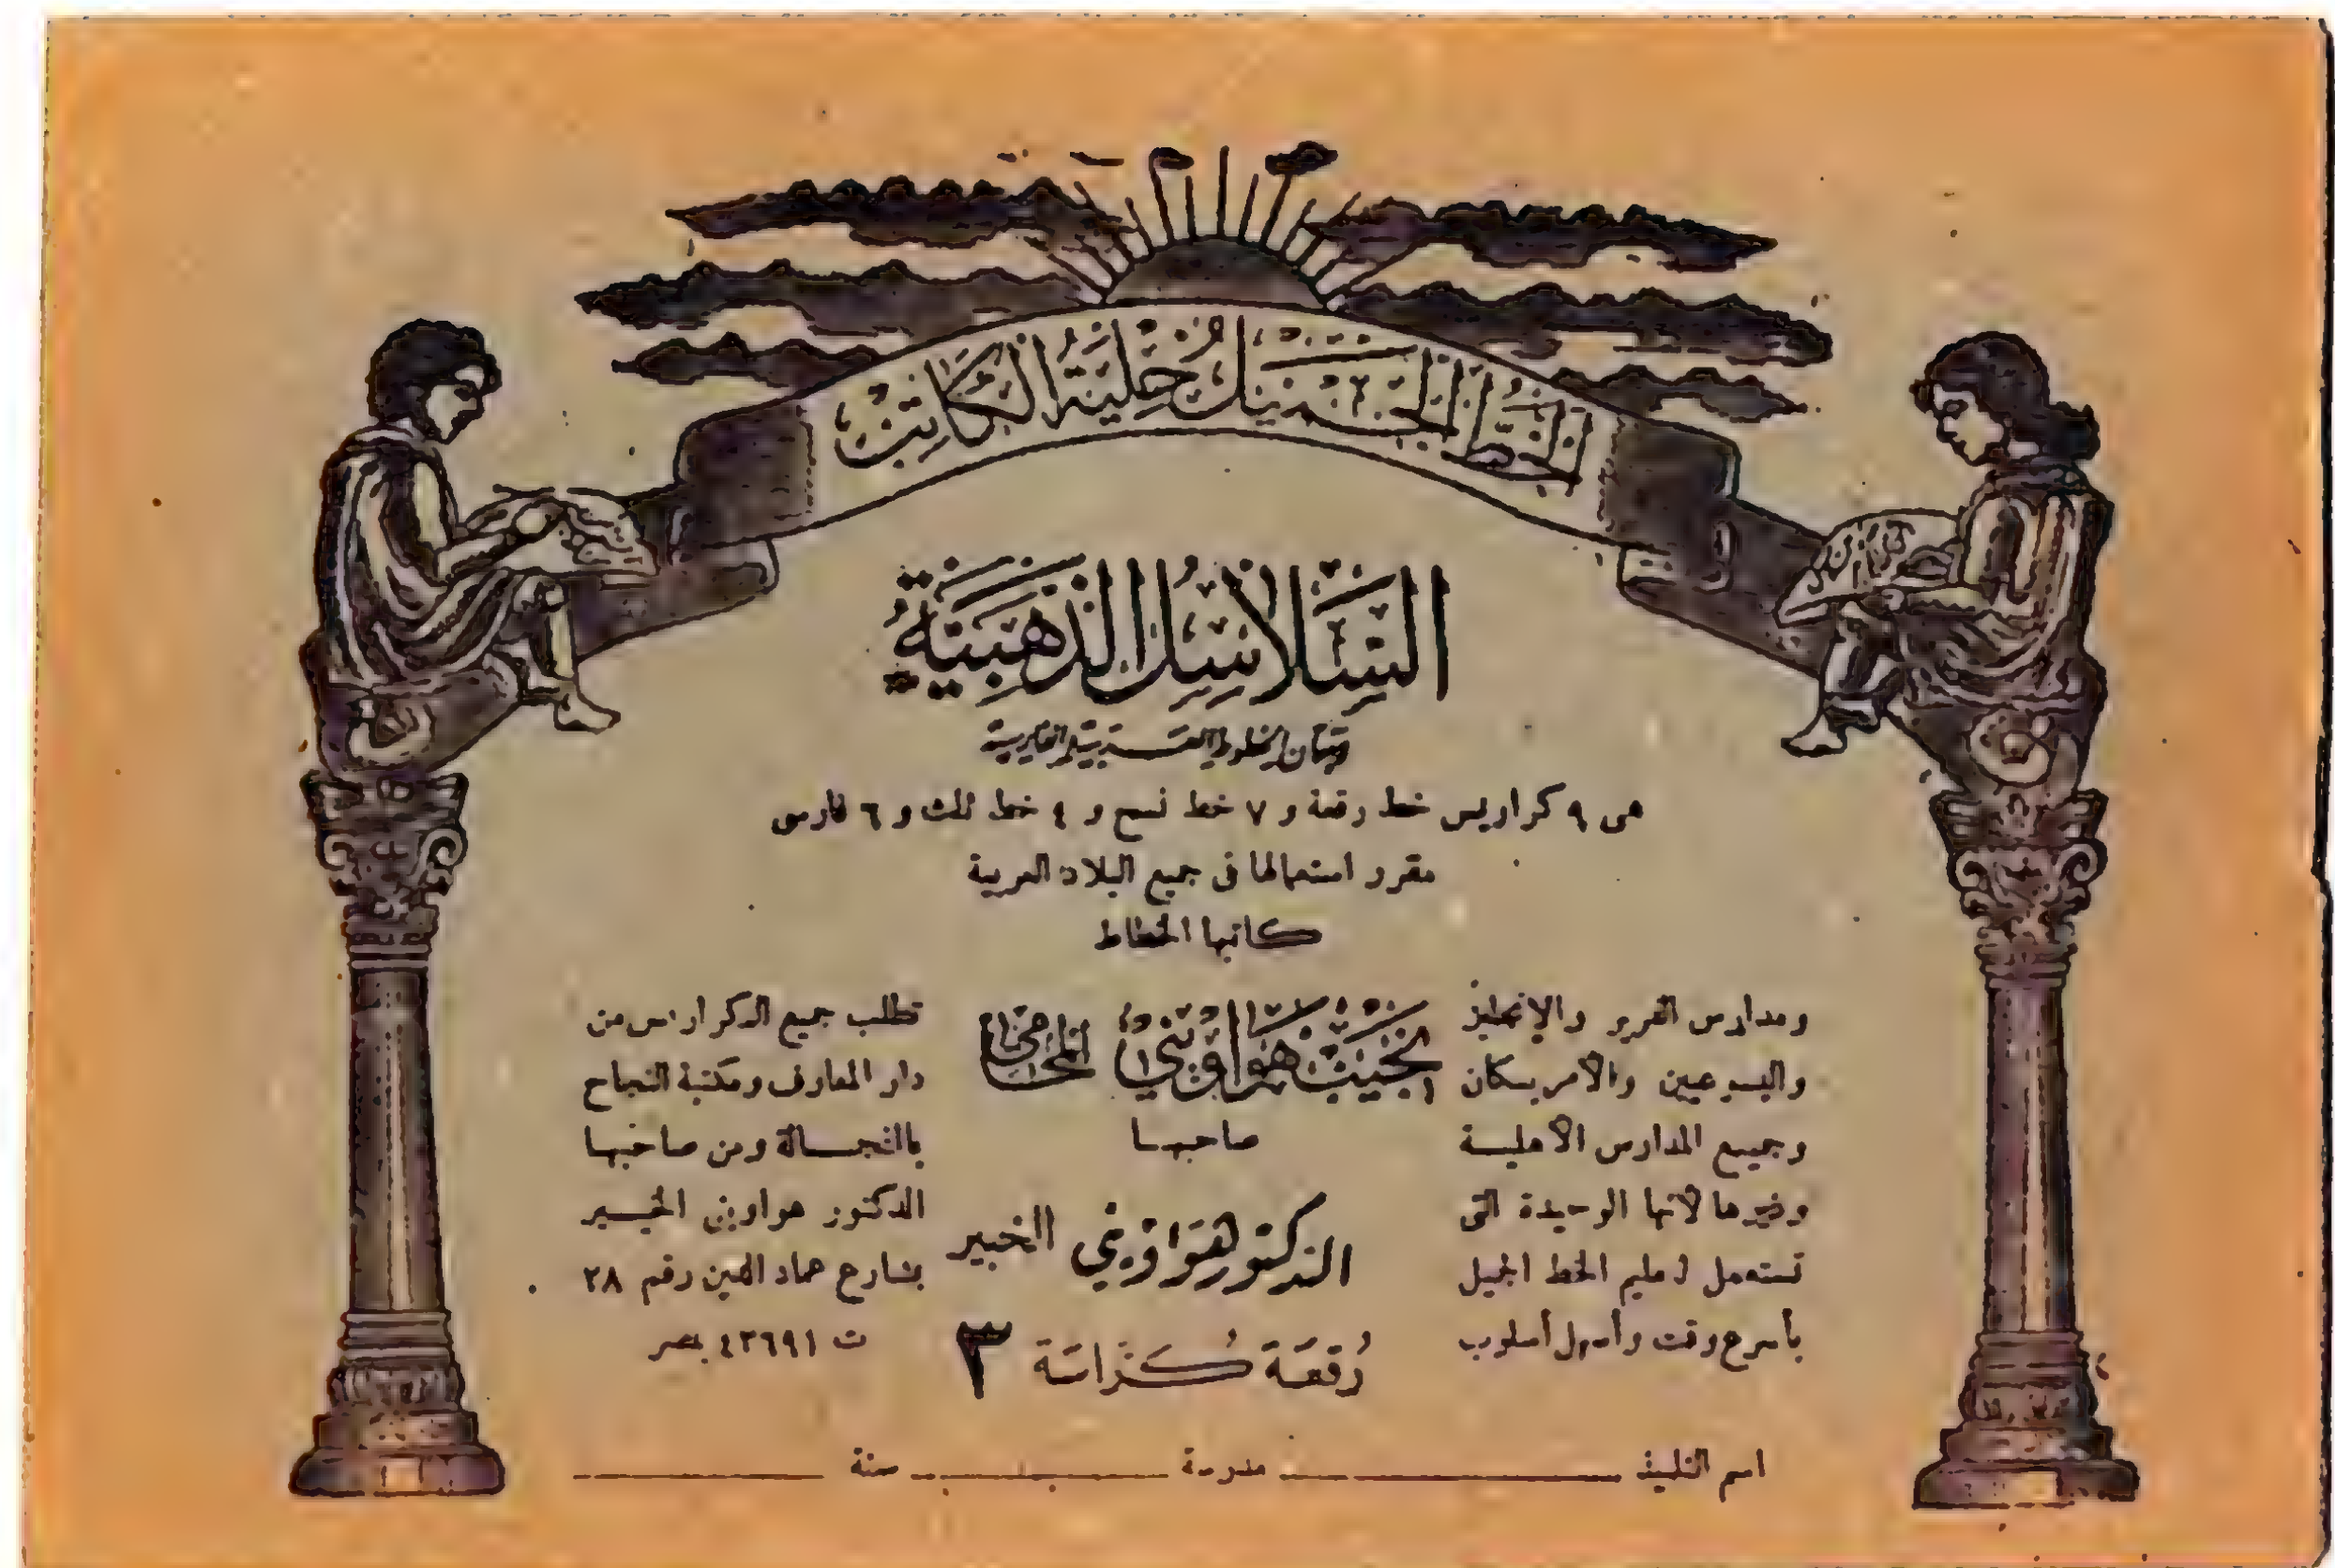 الخط الجميل حلية الكاتب
السلاسل الذهبية
هى ٩ كراريس خط رقعة و ٧ خط نسخ و ٤ خط ثلث و ٦ فارسى
مقرر استعمالها فى جميع البلاد العربية
كاتبها الخطاط
نجيب هواويني المحامي
صاحبها
الدكتور هواويني الخبير
رقعة كراسة ٣
ومدارس الفرير والإنجليز
واليسوعيين والأمريكان
وجميع المدارس الأهلية
وغيرها لأنها الوحيدة التى
تستعمل لتعليم الخط الجميل
بأسرع وقت وأسهل أسلوب
تطلب جميع الكراريس من
دار المعارف ومكتبة النجاح
بالفجالة ومن صاحبها
الدكتور هواوينى الخبير
بشارع عماد الدين رقم ٢٨
ت ٤٢٦٩١ بمصر
اسم التلميذ مدرسة سنة